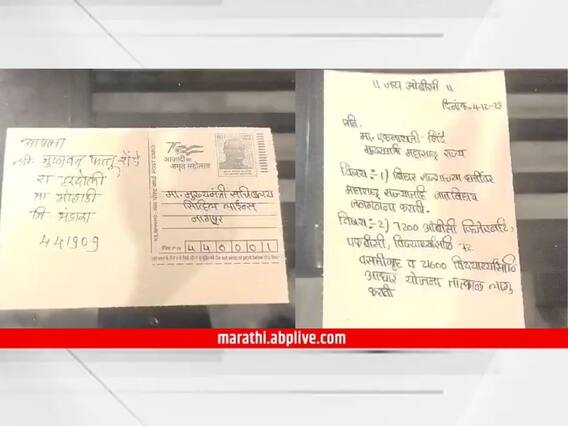 आपला
श्री. गुणवंत फत्तू शेंडे
रा हरदोली
ता मोहाडी
जि भंडारा
441909
75
आज़ादी का
अमृत महोत्सव
मा. मुख्यमंत्री सचिवालय
सिव्हिल लाईन्स
नागपूर
पिन PIN
440001
॥ जय ओबीसी ॥
दिनांक. 4-12-23
प्रति
मा. एकनाथजी शिंदे
मुख्यमंत्री महाराष्ट्र राज्य
विषय :- 1) बिहार राज्याच्या धर्तीवर
महाराष्ट्र राज्यानीही जातनिहाय
जनगणना करावी.
विषय :- 2) 7200 ओबीसी
एसबीसी, विद्यार्थ्यांसाठी 72
वसतीगृह व 21600 विद्यार्थ्यांसाठी
आधार योजना तात्काळ लागू
करावी
marathi.abplive.com